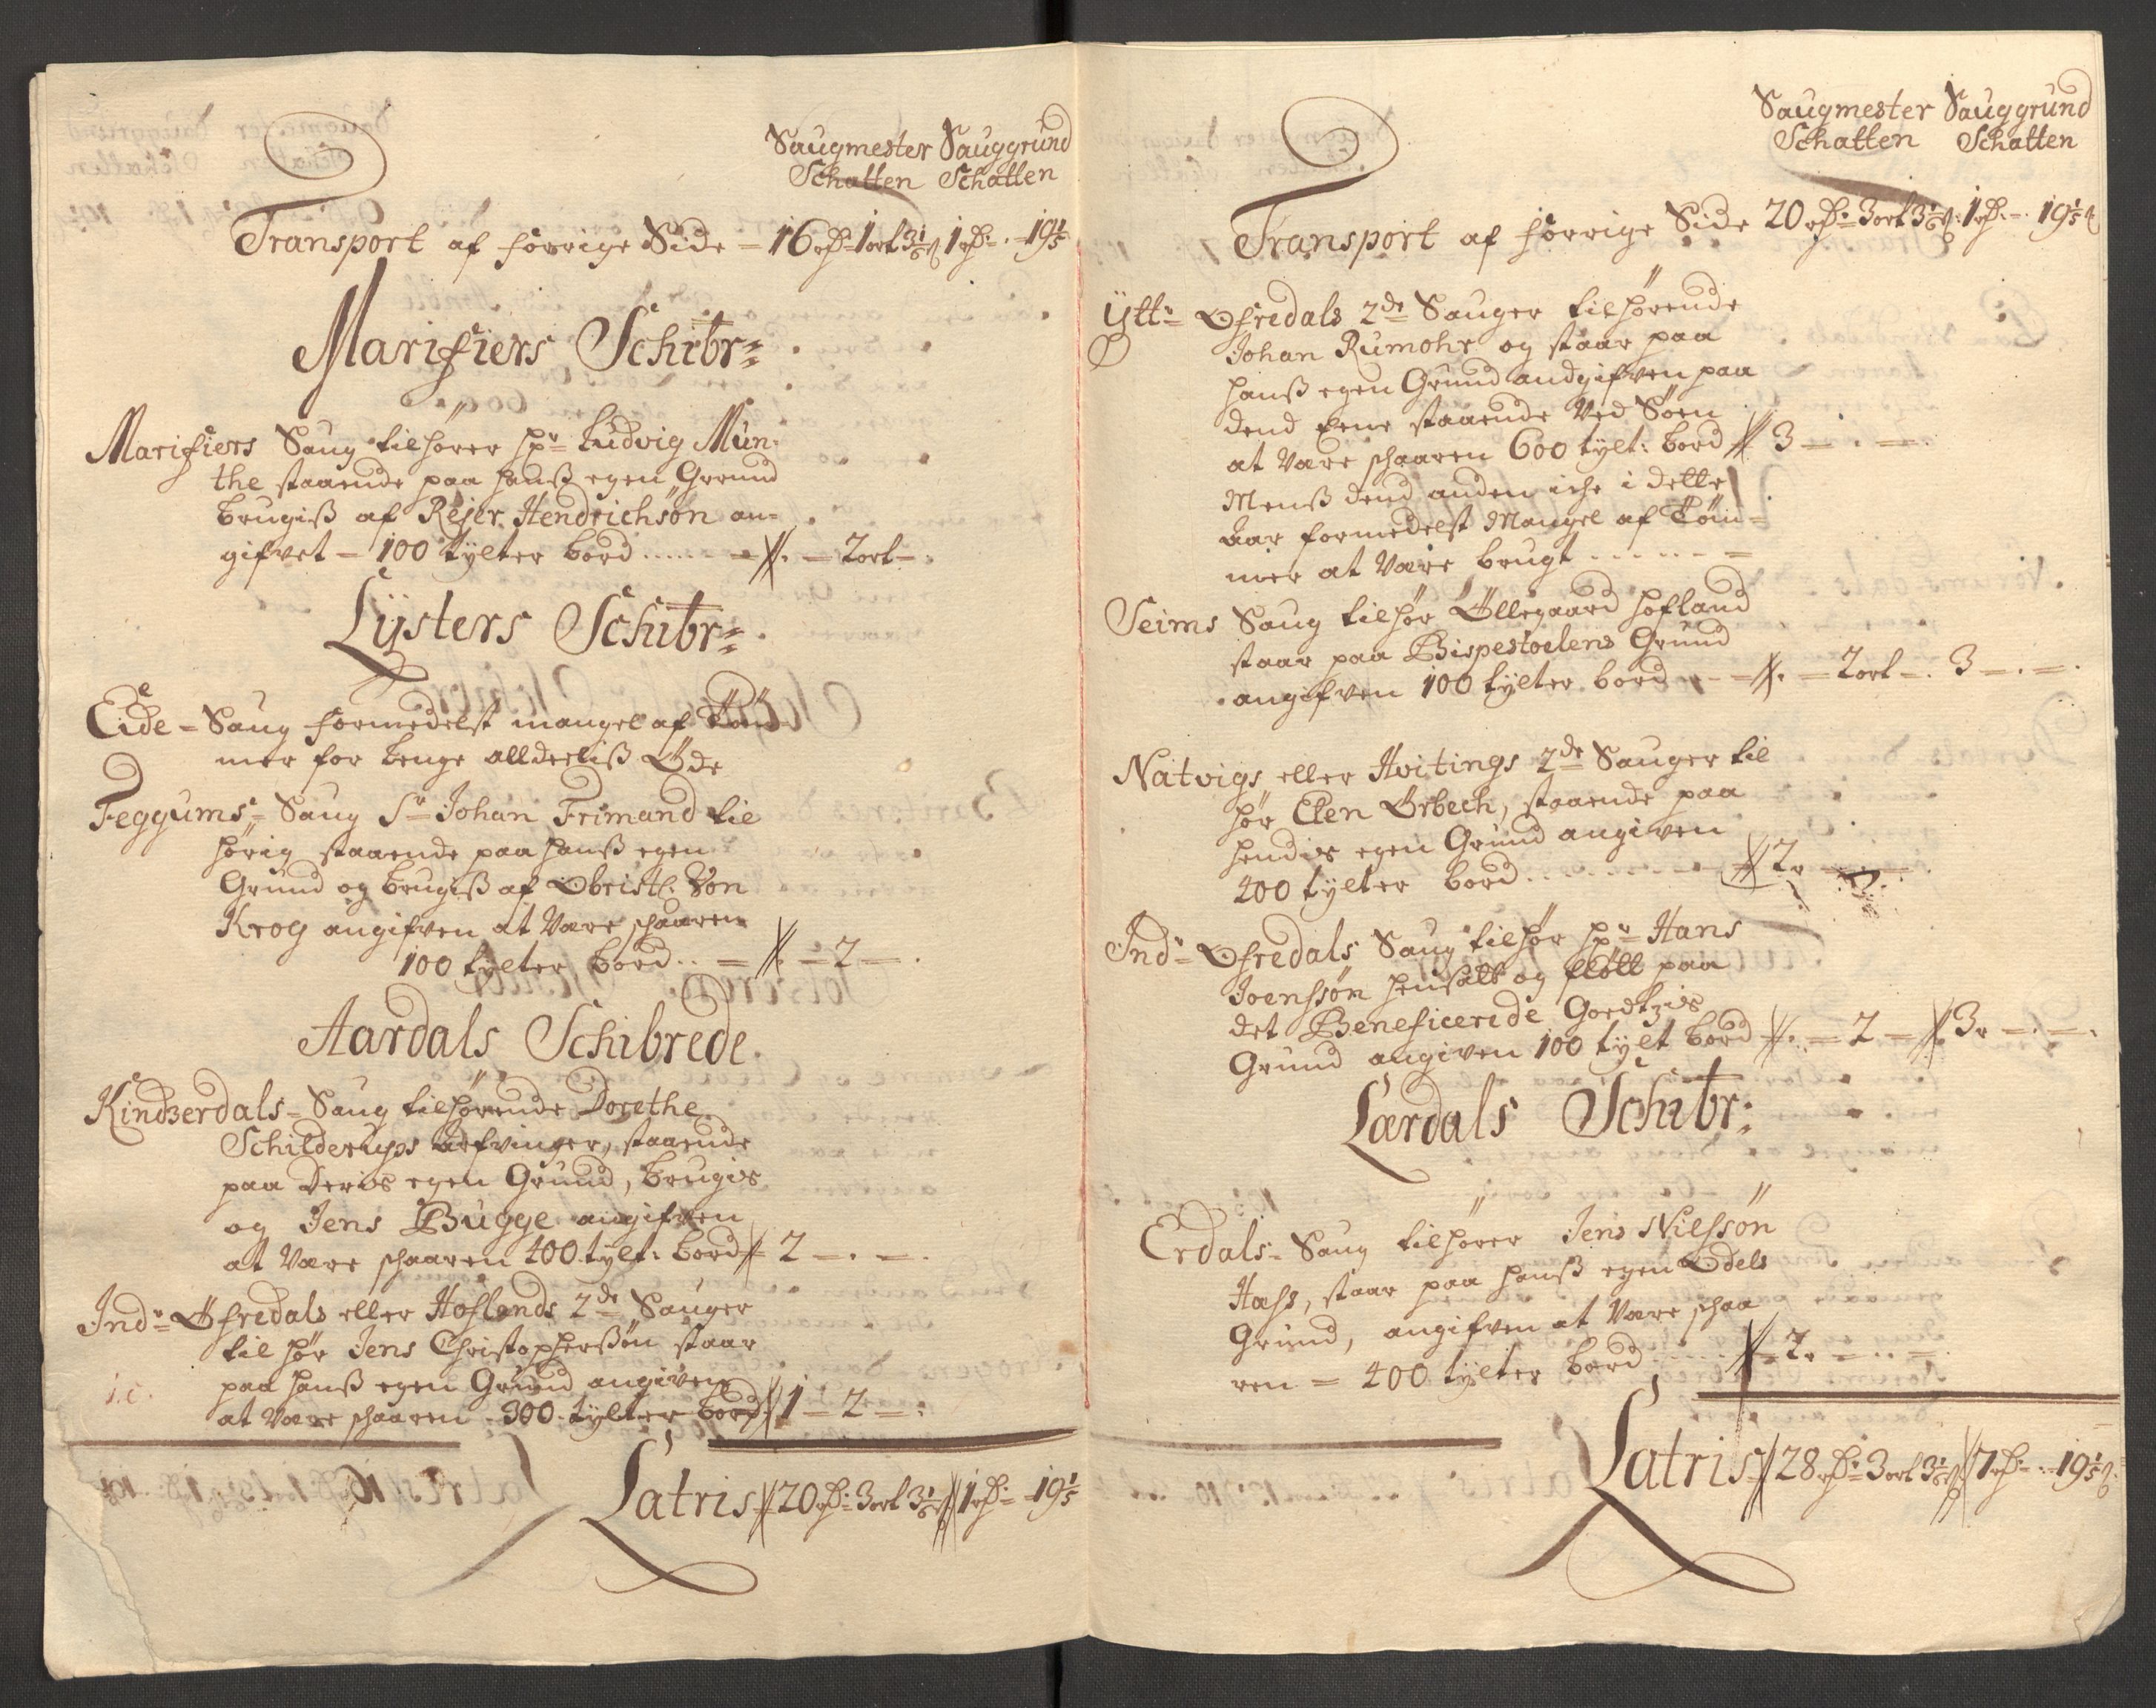 Saugmester Sauggrund
Schatten Schatten
Transport af forrige Side = 16 rdr 1 ort 3 1/6 s 1 rdr - 19 1/5
Marifiers Schibr:
Marifiers Saug tilhører hr Ludvig Mun-
the staaende paa hanß egen Grund
brugiß af Rejer Hendrichsøn an-
gifvet - 100 tylter bord ...... - 2 ort -
Lysters Schibr:
Eide - Saug formedelst mangel af Tøm-
mer for lenge alldeeliß Øde
Feggums - Saug Sr Johan Frimand til
hørig staaende paa hanß egen
Grund og brugiß af Obristl: Von
Krog angifven at Være schaaren
100 tylter bord .. = - 2 -
Aardals Schibrede
Kindzerdals - Saug tilhørende Dorethe
Schilderups arfvinger, staaende
paa Deris egen Grund, brugis
og Jens Bugge angifven
at Være schaaren 400 tylt: bord 2 - . -
Indr Øfredals eller Hoflands 2de Sauger
til hør Jens Christophersøn staar
paa hanß egen Grund angiven
at Være schaaren 300 tylter bord 1 - 2 -
Latris 20 rdr 3 ort 3 1/6 s 1 rdr - 19 1/5
Saugmester Sauggrund
Schatten Schatten
Transport af forrige Side 20 rdr 3 ort 3 1/6 s 1 rdr - 19 1/5 s
Yttr Øfredals 2de Sauger tilhørende
Johan Rumohr og staar paa
hanß egen Grund andgifven paa
dend Eene staaende Ved Søen
at Være schaaren 600 tylt: bord 3 - . -
Menß dend anden iche i dette
Aar formedelst Mangel af Tøm-
mer at Være brugt ......
Seims Saug tilhør Øllegaard Hofland
staar paa Bispestoelens Grund
angifven 100 tylter bord - - 2 ort - 3 - . -
Natvigs eller Hvitings 2de Sauger til
hør Elen Ørbech, staaende paa
hendis egen Grund angiven
400 tylter bord ........ 2
Indr Øfredals Saug tilhør hr Hans
Joenssøn hensatt og fløtt paa
det Beneficerede Goedtzis
Grund angiven 100 tylt bord - 2 - 3 - . -
Lærdals Schibr:
Erdals - Saug tilhører Jens Nilssøn
Hass, staar paa hanß egen Odels
Grund, angifven at Være schaa
ren = 400 tylter bord ..... 2 - . -
Latris 28 rdr 3 ort 3 1/6 s 7 rdr - 19 1/5 s